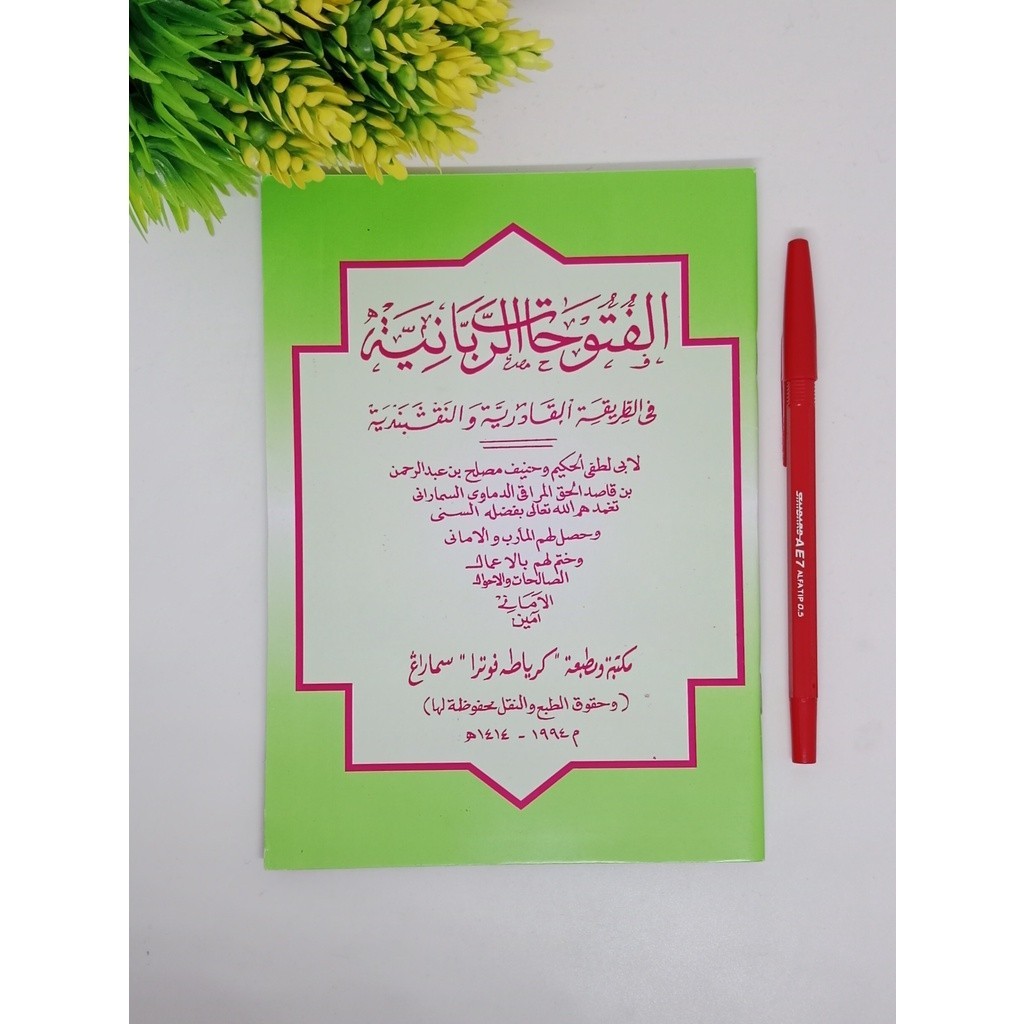 الفُتُوحَات الرَّبَّانِيَّة
فى الطَّرِيقَةِ القَادِرِيَّة وَالنَقْشَبَنْدِيَة
لابى لطفى الحكيم وحنيف مصلح بن عبد الرحمن
بن قاصد الحق المراقى الدماوى السمارانى
تغمدهم الله تعالى بفضله السنى
وحصل لهم المأرب والامانى
وختم لهم بالاعمال
الصالحات والاحوال
الاَمَانِى
آمين
مكتبة ومطبعة "كرياطه فوترا" سماراڠ
(وحقوق الطبع والنقل محفوظة لها)
م ١٩٩٤ - ١٤١٤ هـ
STANDARD AE7 ALFA TIP 0.5